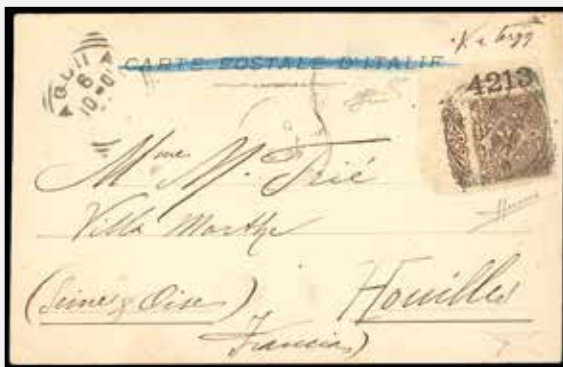 CARTE POSTALE D'ITALIE
4213
Mme M. Trié
Villa Marthe
(Seine & Oise) Houilles
Francia)